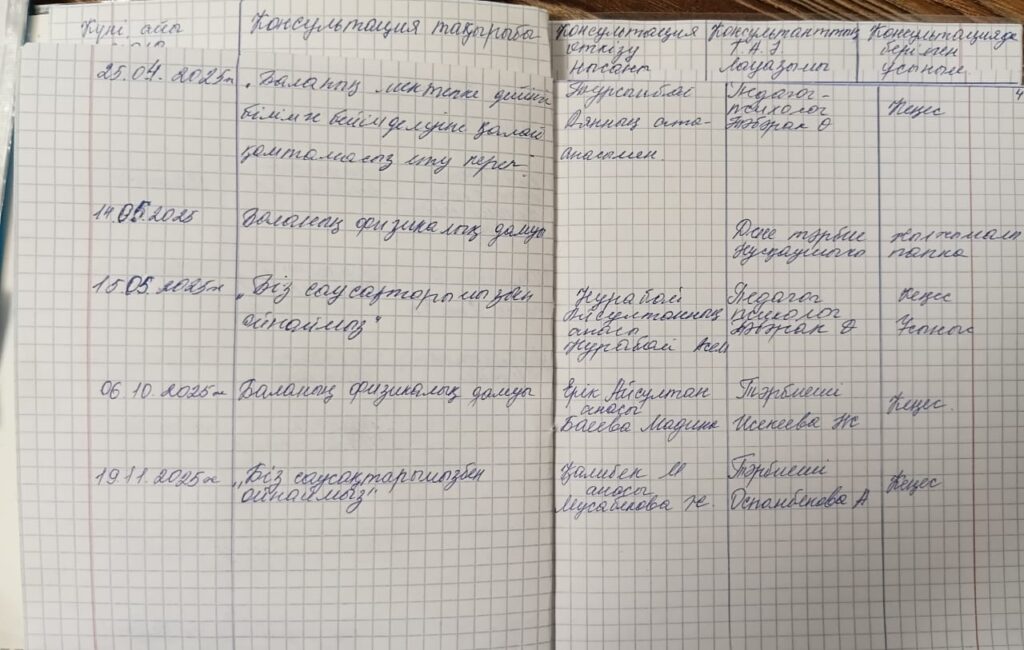 Күні, айы
Консультация тақырыбы
Консультация
өткізу
нысаны
Консультанттың
Т.А.Ә
Лауазымы
Консультацияда
берілген
ұсыныс
25.04.2025ж
„Баланың мектепке дейінгі
білімге бейімделуіне қалай
қамтамасыз ету керек"
Баянның ата-
анасымен.
Педагог-
психолог
Кеңес
4
14.05.2025
Баланың физикалық дамуы
Дене тәрбие
нұсқаушысы
жылжымалы
папка
15.05.2025ж
„Біз саусақтарымызбен
ойнаймыз"
Нұрабай
Айсултанның
анасы
Нұрабай
Педагог
психолог
Кеңес
Ұсыныс
06.10.2025ж
Баланың физикалық дамуы
Ерік Айсултан
анасы
Баева Мадина
Тәрбиеші
Исенеева Ж
Кеңес.
19.11.2025ж
„Біз саусақтарымызбен
ойнаймыз"
Қалибек М
анасы
Мусабекова Ж.
Тәрбиеші
Оспанбекова А
Кеңес